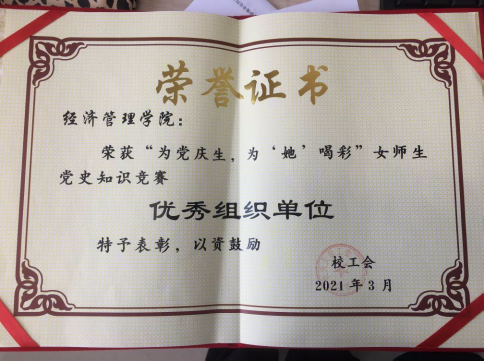 荣誉证书
经济管理学院：
荣获“为党庆生，为‘她’喝彩”女师生
党史知识竞赛
优秀组织单位
特予表彰，以资鼓励
校工会
2021年3月